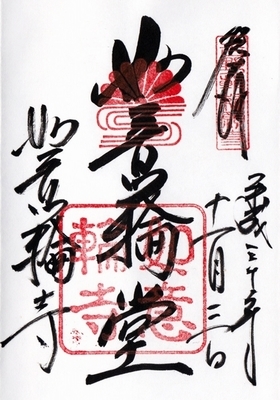 奉拝
平成三十年
十一月三日
如意輪堂
如意輪寺
如意
輪寺